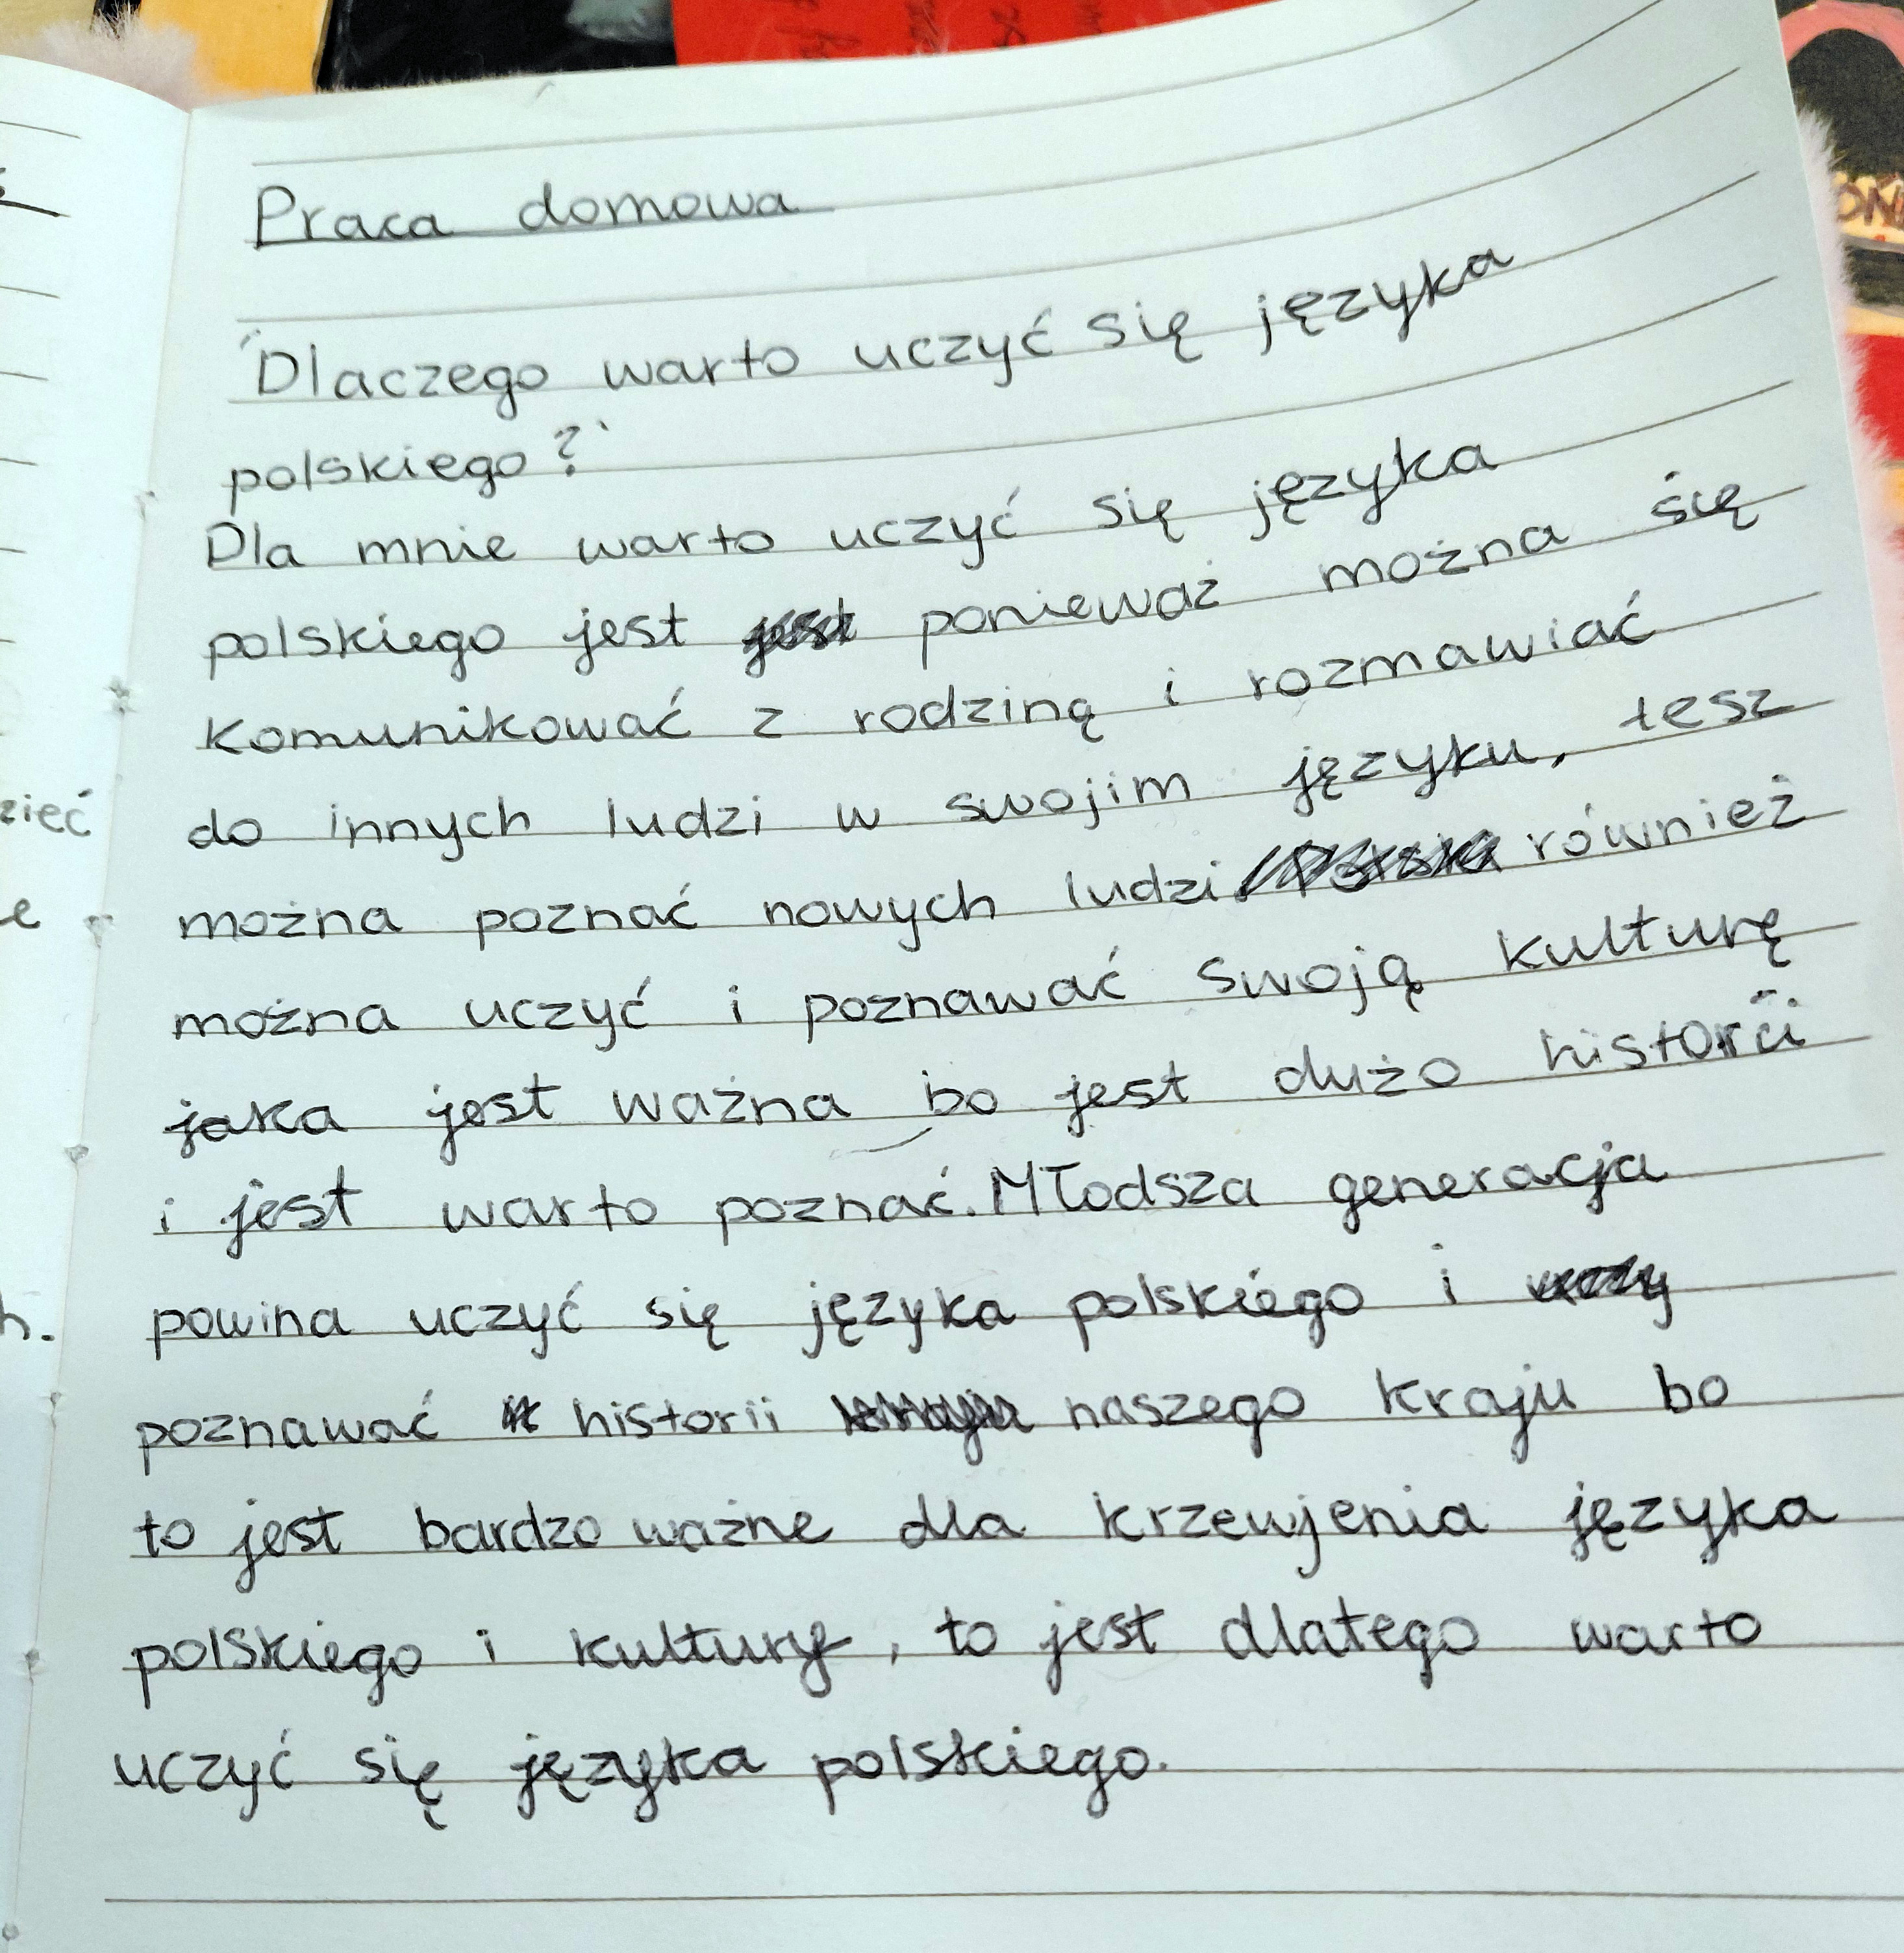 Praca domowa
"Dlaczego warto uczyć się języka
polskiego?"
Dla mnie warto uczyć się języka
polskiego jest ponieważ można się
komunikować z rodziną i rozmawiać
do innych ludzi w swojim języku, tesz
można poznać nowych ludzi również
można uczyć i poznawać swoją kulturę
jaka jest ważna bo jest dużo historii
i jest warto poznać. Młodsza generacja
powina uczyć się języka polskiego i
poznawać historii naszego kraju bo
to jest bardzo ważne dla krzewjenia języka
polskiego i kultury, to jest dlatego warto
uczyć się języka polskiego.